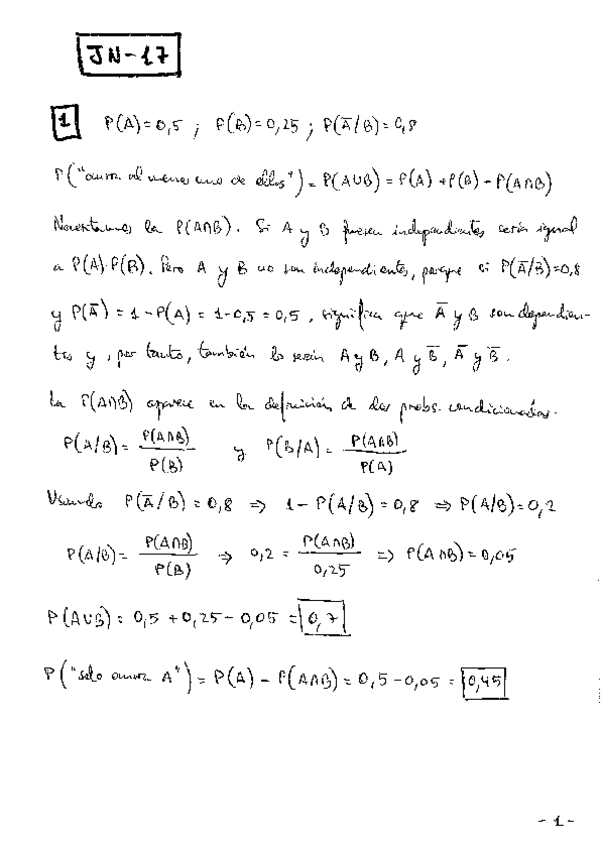 JN-17
1 P(A)=0,5 ; P(B)=0,25 ; P(A̅/B)=0,8
P("ocurra al menos uno de ellos") = P(A∪B) = P(A) + P(B) - P(A∩B)
Necesitamos la P(A∩B). Si A y B fuesen independientes sería igual
a P(A)·P(B). Pero A y B no son independientes, porque si P(A̅/B)=0,8
y P(A̅) = 1 - P(A) = 1-0,5 = 0,5, significa que A̅ y B son dependien-
tes y, por tanto, también lo serán A y B, A y B̅, A̅ y B̅.
La P(A∩B) aparece en la definición de las probs. condicionadas.
P(A/B) = P(A∩B)/P(B) y P(B/A) = P(A∩B)/P(A)
Usando P(A̅/B) = 0,8 ⇒ 1 - P(A/B) = 0,8 ⇒ P(A/B) = 0,2
P(A/B) = P(A∩B)/P(B) ⇒ 0,2 = P(A∩B)/0,25 ⇒ P(A∩B) = 0,05
P(A∪B) = 0,5 + 0,25 - 0,05 = 0,7
P("solo ocurra A") = P(A) - P(A∩B) = 0,5 - 0,05 = 0,45
- 1 -